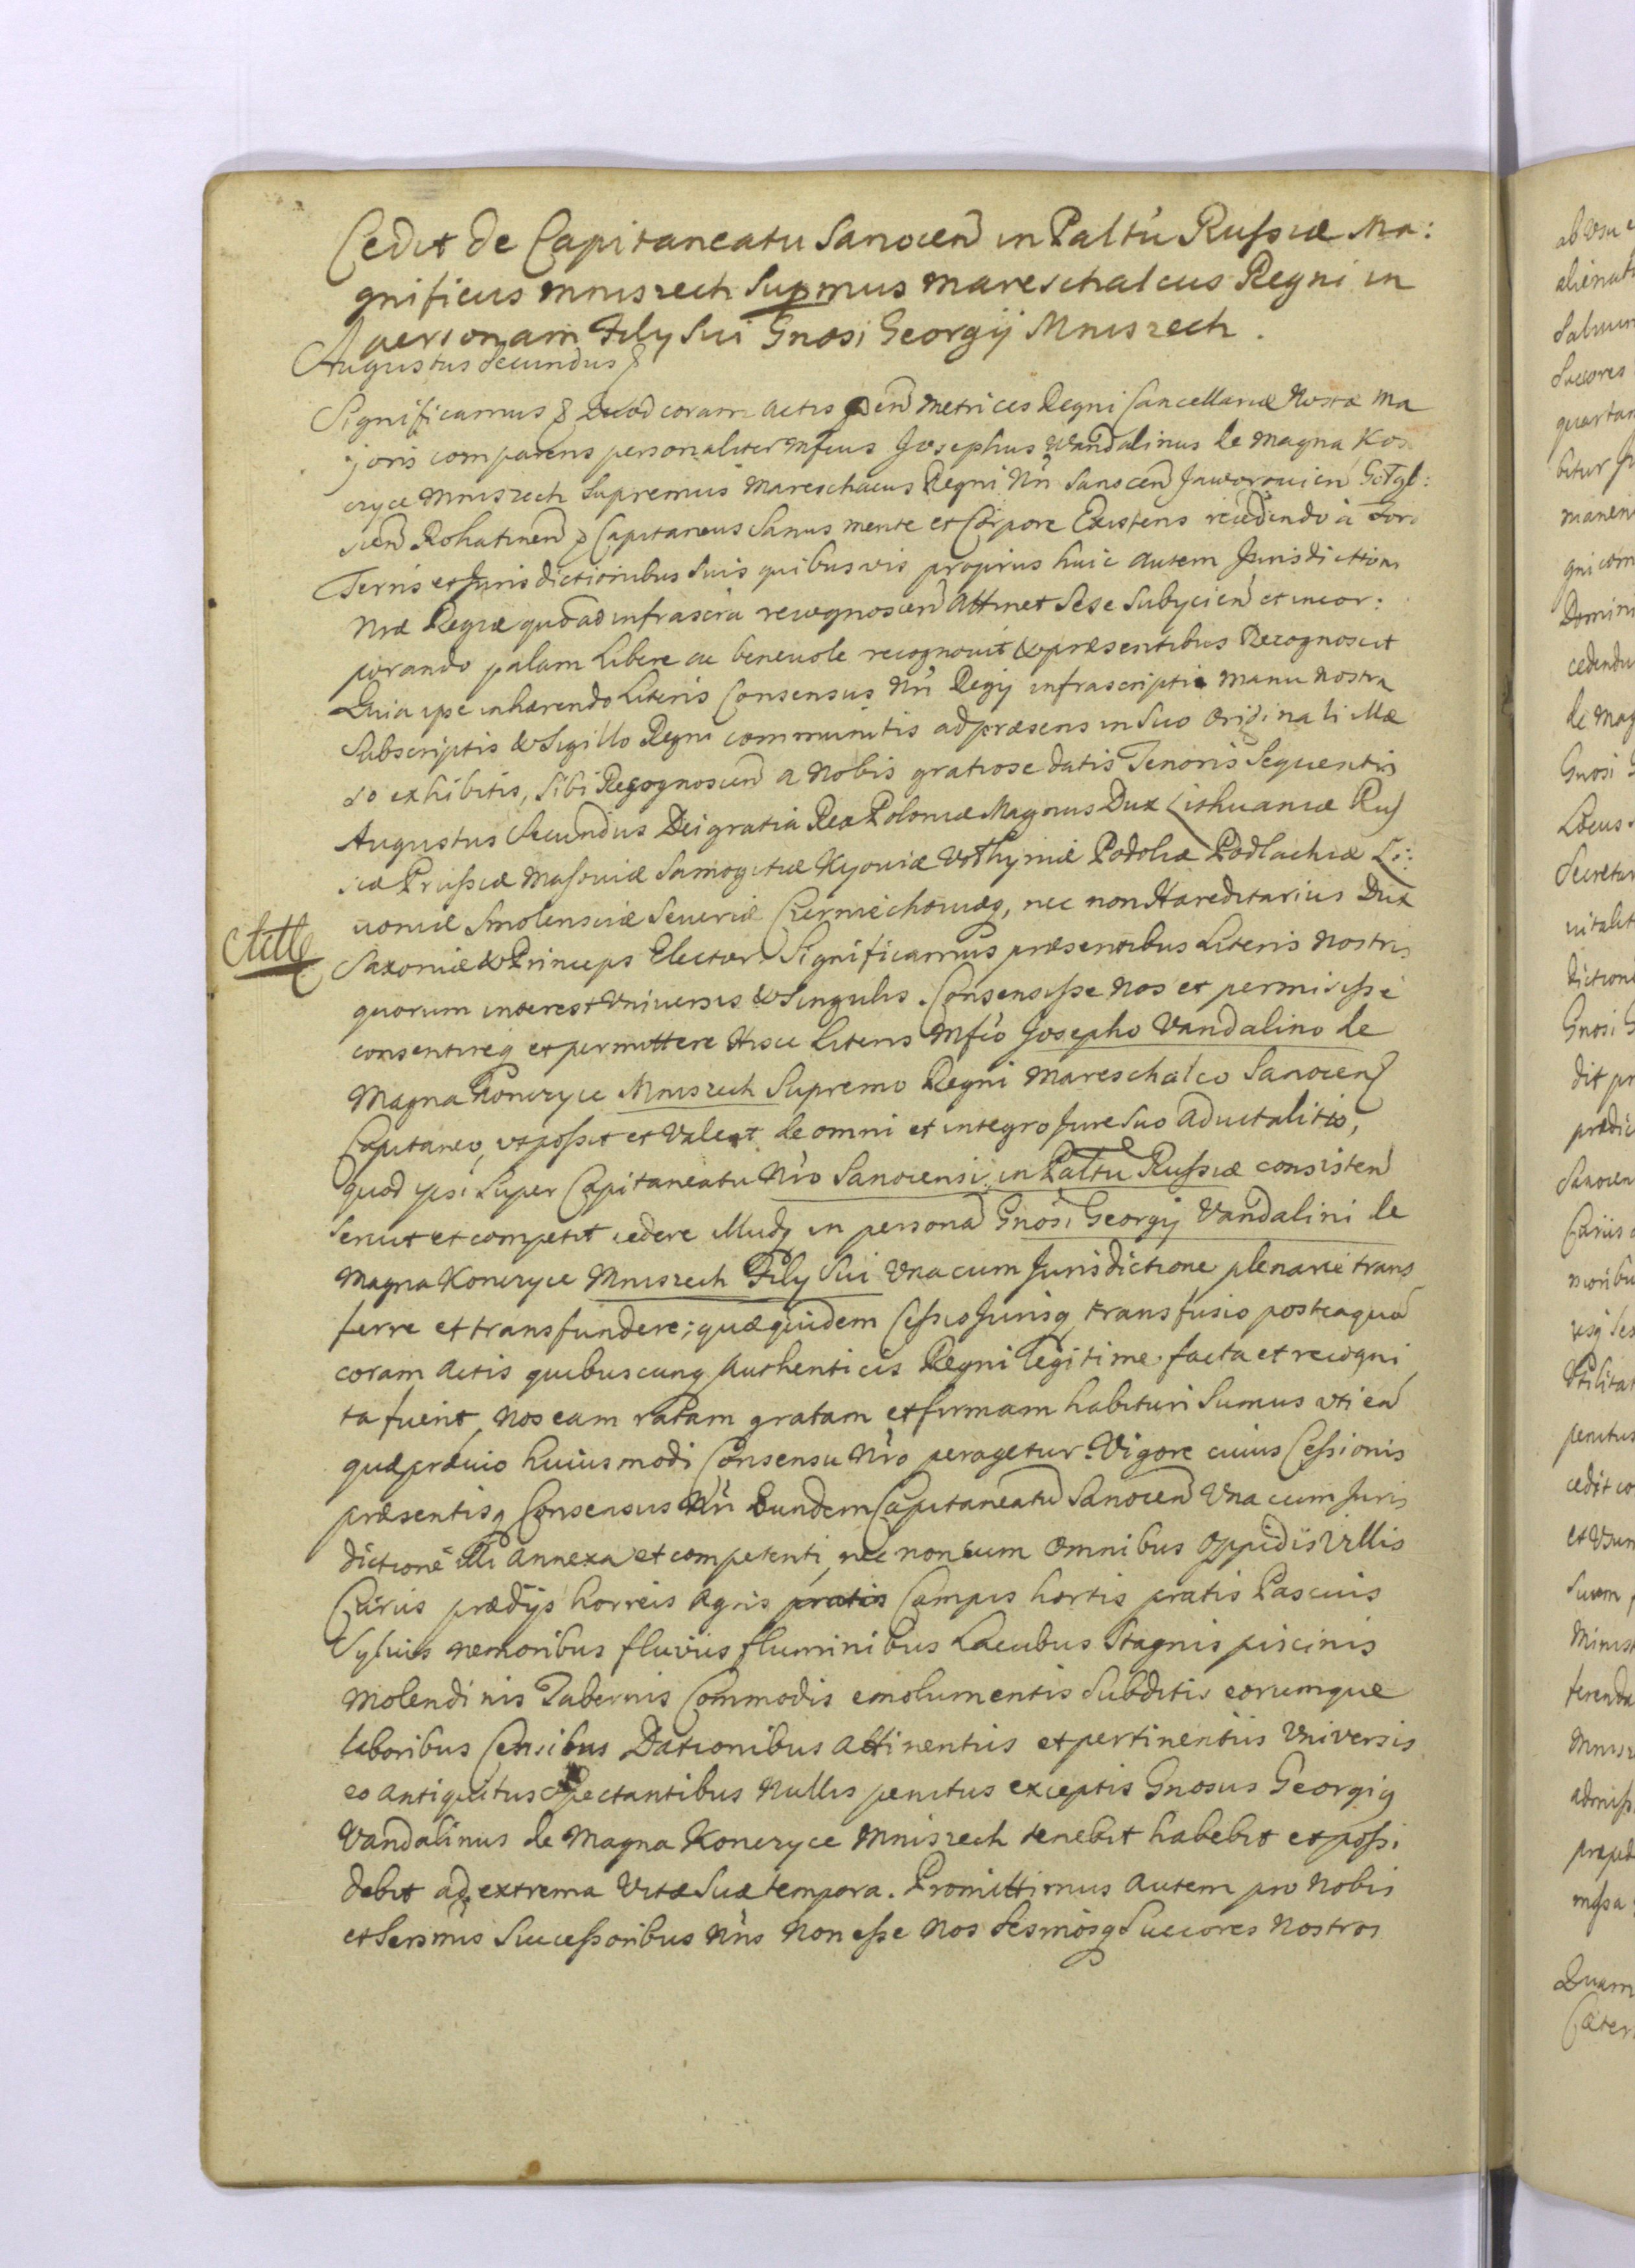 Cedit de Capitaneatu Sanocen in Paltu Russiæ Ma:
gnificus Mniszech Supmus Mareschalcus Regni in
personam Fily Sui Gnosi Georgij Mniszech.
Augustus Secundus &
Significamus & Quod coram actis pen Metrices Regni Cancellariæ Nostæ Ma
joris comparens personaliter Mfcus Josephus Wandalinus de Magna Kon
czyce Mniszech Supremus Mareschalcus Regni Nri Sanocen Jaworovien
Rohatinen & Capitaneus Sanus mente et Corpore Existens recedendo à Foro
Terris et Jurisdictionibus Suis quibusvis proprius huic autem Jurisdictioni
Nræ Regiæ quoad infrascra recognoscen attinet Sese Subycien et incor:
porando palam Libere ac benevole recognovit & præsentibus Recognoscit
Quia ipse inhærendo Literis Consensus Nri Regij infrascripti manu Nostra
Subscriptis & Sigillo Regni communitis ad præsens in Suo Originali illæ
so exhibitis, Sibi Recognoscen a Nobis gratiose datis Tenoris Sequentis
Augustus Secundus Dei gratia Rex Poloniæ Magnus Dux Lithuaniæ Rus
siæ Prussiæ Masoviæ Samogitiæ Kyoviæ Volhyniæ Podoliæ Podlachiæ Li:
voniæ Smolensciæ Severiæ Czerniechoviæq, nec non Hæreditarius Dux
Saxoniæ & Princeps Elector. Significamus præsentibus Literis Nostris
quorum interest Universis & Singulis. Consensisse Nos et permisisse
consentireq et permittere Hisce Literis Mfco Josepho Vandalino de
Magna Konczyce Mniszech Supremo Regni Mareschalco Sanocen
Capitaneo, ut possit et Valeat de omni et integro Jure Suo advitalitio,
quod ipsi Super Capitaneatu Nro Sanocensi in Paltu Russiæ consisten
Servit et competit cedere illudq in persona Gnosi Georgij Vandalini de
Magna Konczyce Mniszech Fily Sui Una cum Jurisdictione plenarie trans
ferre et transfundere; quæquidem Cessio Jurisq transfusio posteaqua
coram actis quibuscunq Authenticis Regni legitime facta et recogni
ta fuerit, Nos eam ratam gratam et firmam habituri Sumus uti ea
quæ prævio huiusmodi Consensu Nro peragetur. Vigore cuius Cessionis
præsentisq Consensus Nri Eundem Capitaneatu Sanocen Una cum Juris
dictione illi annexa et competenti, nec non cum omnibus Oppidis Villis
Curiis prædijs horreis Agris Campis hortis pratis Pascuis
Sylvis nemoribus fluviis fluminibus Lacubus Stagnis piscinis
Molendinis Tabernis Commodis emolumentis Subditis eorumque
laboribus Censibus Dationibus attinentiis et pertinentiis Universis
eo antiquitus Spectantibus Nullis penitus exceptis Gnosus Georgig
Vandalinus de Magna Konczyce Mniszech tenebit habebit et possi
debit ad extrema Vitæ Suæ tempora. Promittimus autem pro Nobis
et Sersmis Successoribus Nris Non esse Nos Sersmosq Succores Nostros